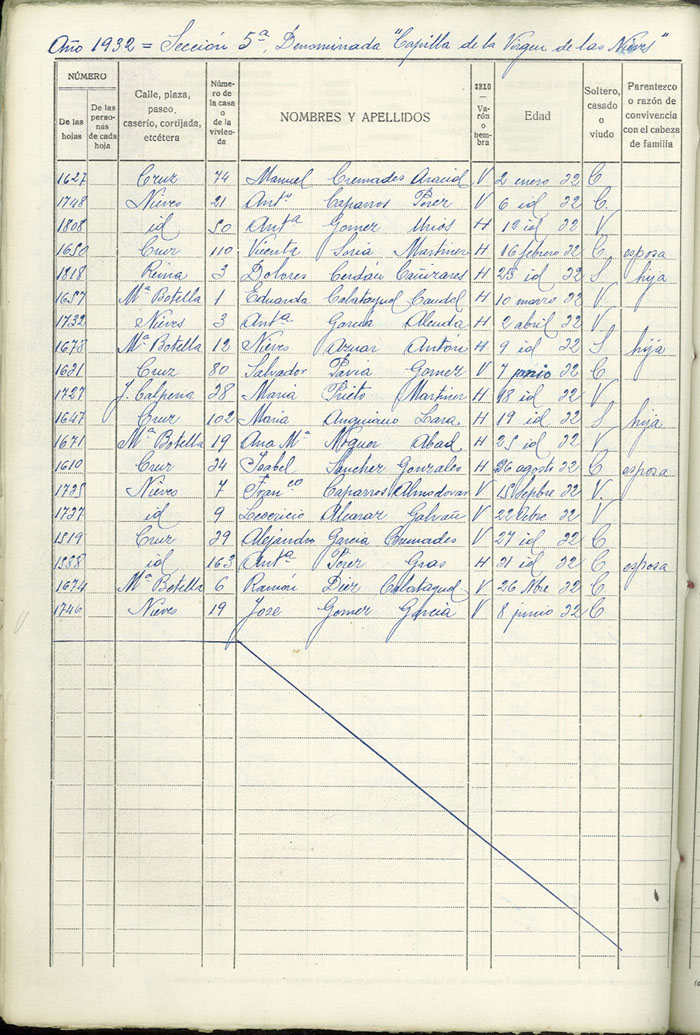 Año 1932 = Sección 5ª, Denominada "Capilla de la Virgen de las Nieves"
NÚMERO
De las hojas
De las personas de cada hoja
Calle, plaza, paseo, caserío, cortijada, etcétera
Número de la casa o de la vivienda
NOMBRES Y APELLIDOS
SEXO — Varón o hembra
Edad
Soltero, casado o viudo
Parentezco o razón de convivencia con el cabeza de familia
1627 Cruz 74 Manuel Cremades V 2 enero 32 C
1748 Nieves 21 Antº Caparros Perez V 6 id 32 C
1808 id 50 Antª Gomez Mrios H 12 id 32 V
1650 Cruz 110 Vicenta Soria Martinez H 16 febrero 32 C esposa
1818 Reina 3 Dolores Cerdán Cañizares H 25 id 32 S hija
1657 Mª Botella 1 Eduarda Calatayud H 10 marzo 32 V
1732 Nieves 3 Antª Garcia H 2 abril 32 V
1678 Mª Botella 12 Nieves Aznar Antón H 9 id 32 S hija
1621 Cruz 80 Salvador Pavia Gomez V 7 junio 32 C
1727 J. Calpena 28 Maria Prieto Martinez H 18 id 32 V
1647 Cruz 102 Maria Anguiano Lara H 19 id 32 S hija
1671 Mª Botella 19 Ana Mª Noguer Abad H 25 id 32 V
1610 Cruz 34 Isabel Sanchez Gonzales H 26 agosto 32 C esposa
1735 Nieves 7 Franco Caparros Almodovar V 15 Sepbre 32 V
1737 id 9 Alcaraz Galvañ V 22 Octbre 32 V
1519 Cruz 39 Alejandro Garcia Cremades V 27 id 32 C
1588 id 163 Antª Perez Gras H 31 id 32 C esposa
1674 Mª Botella 6 Ramón Diez Calatayud V 26 Nbre 32 C
1746 Nieves 19 Jose Gomez Garcia V 8 junio 32 C